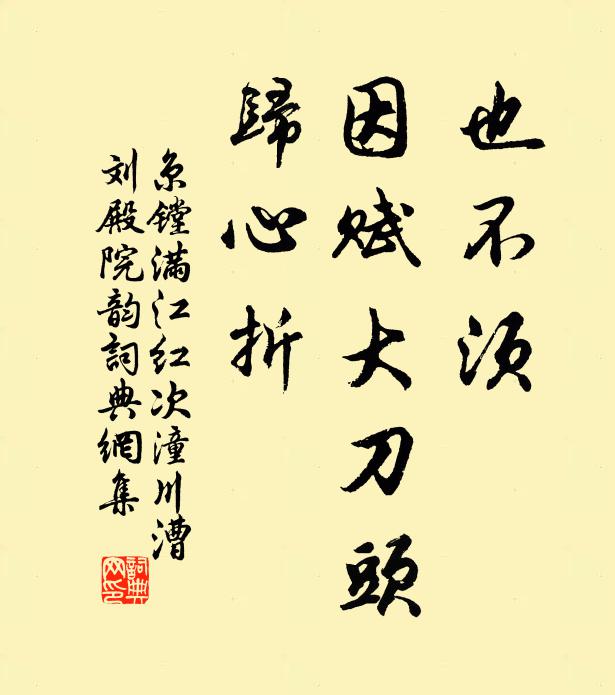 也不須
因赋大刀頭
歸心折
京镗满江红次潼川漕
刘殿院韵詞典網集
詞典网印